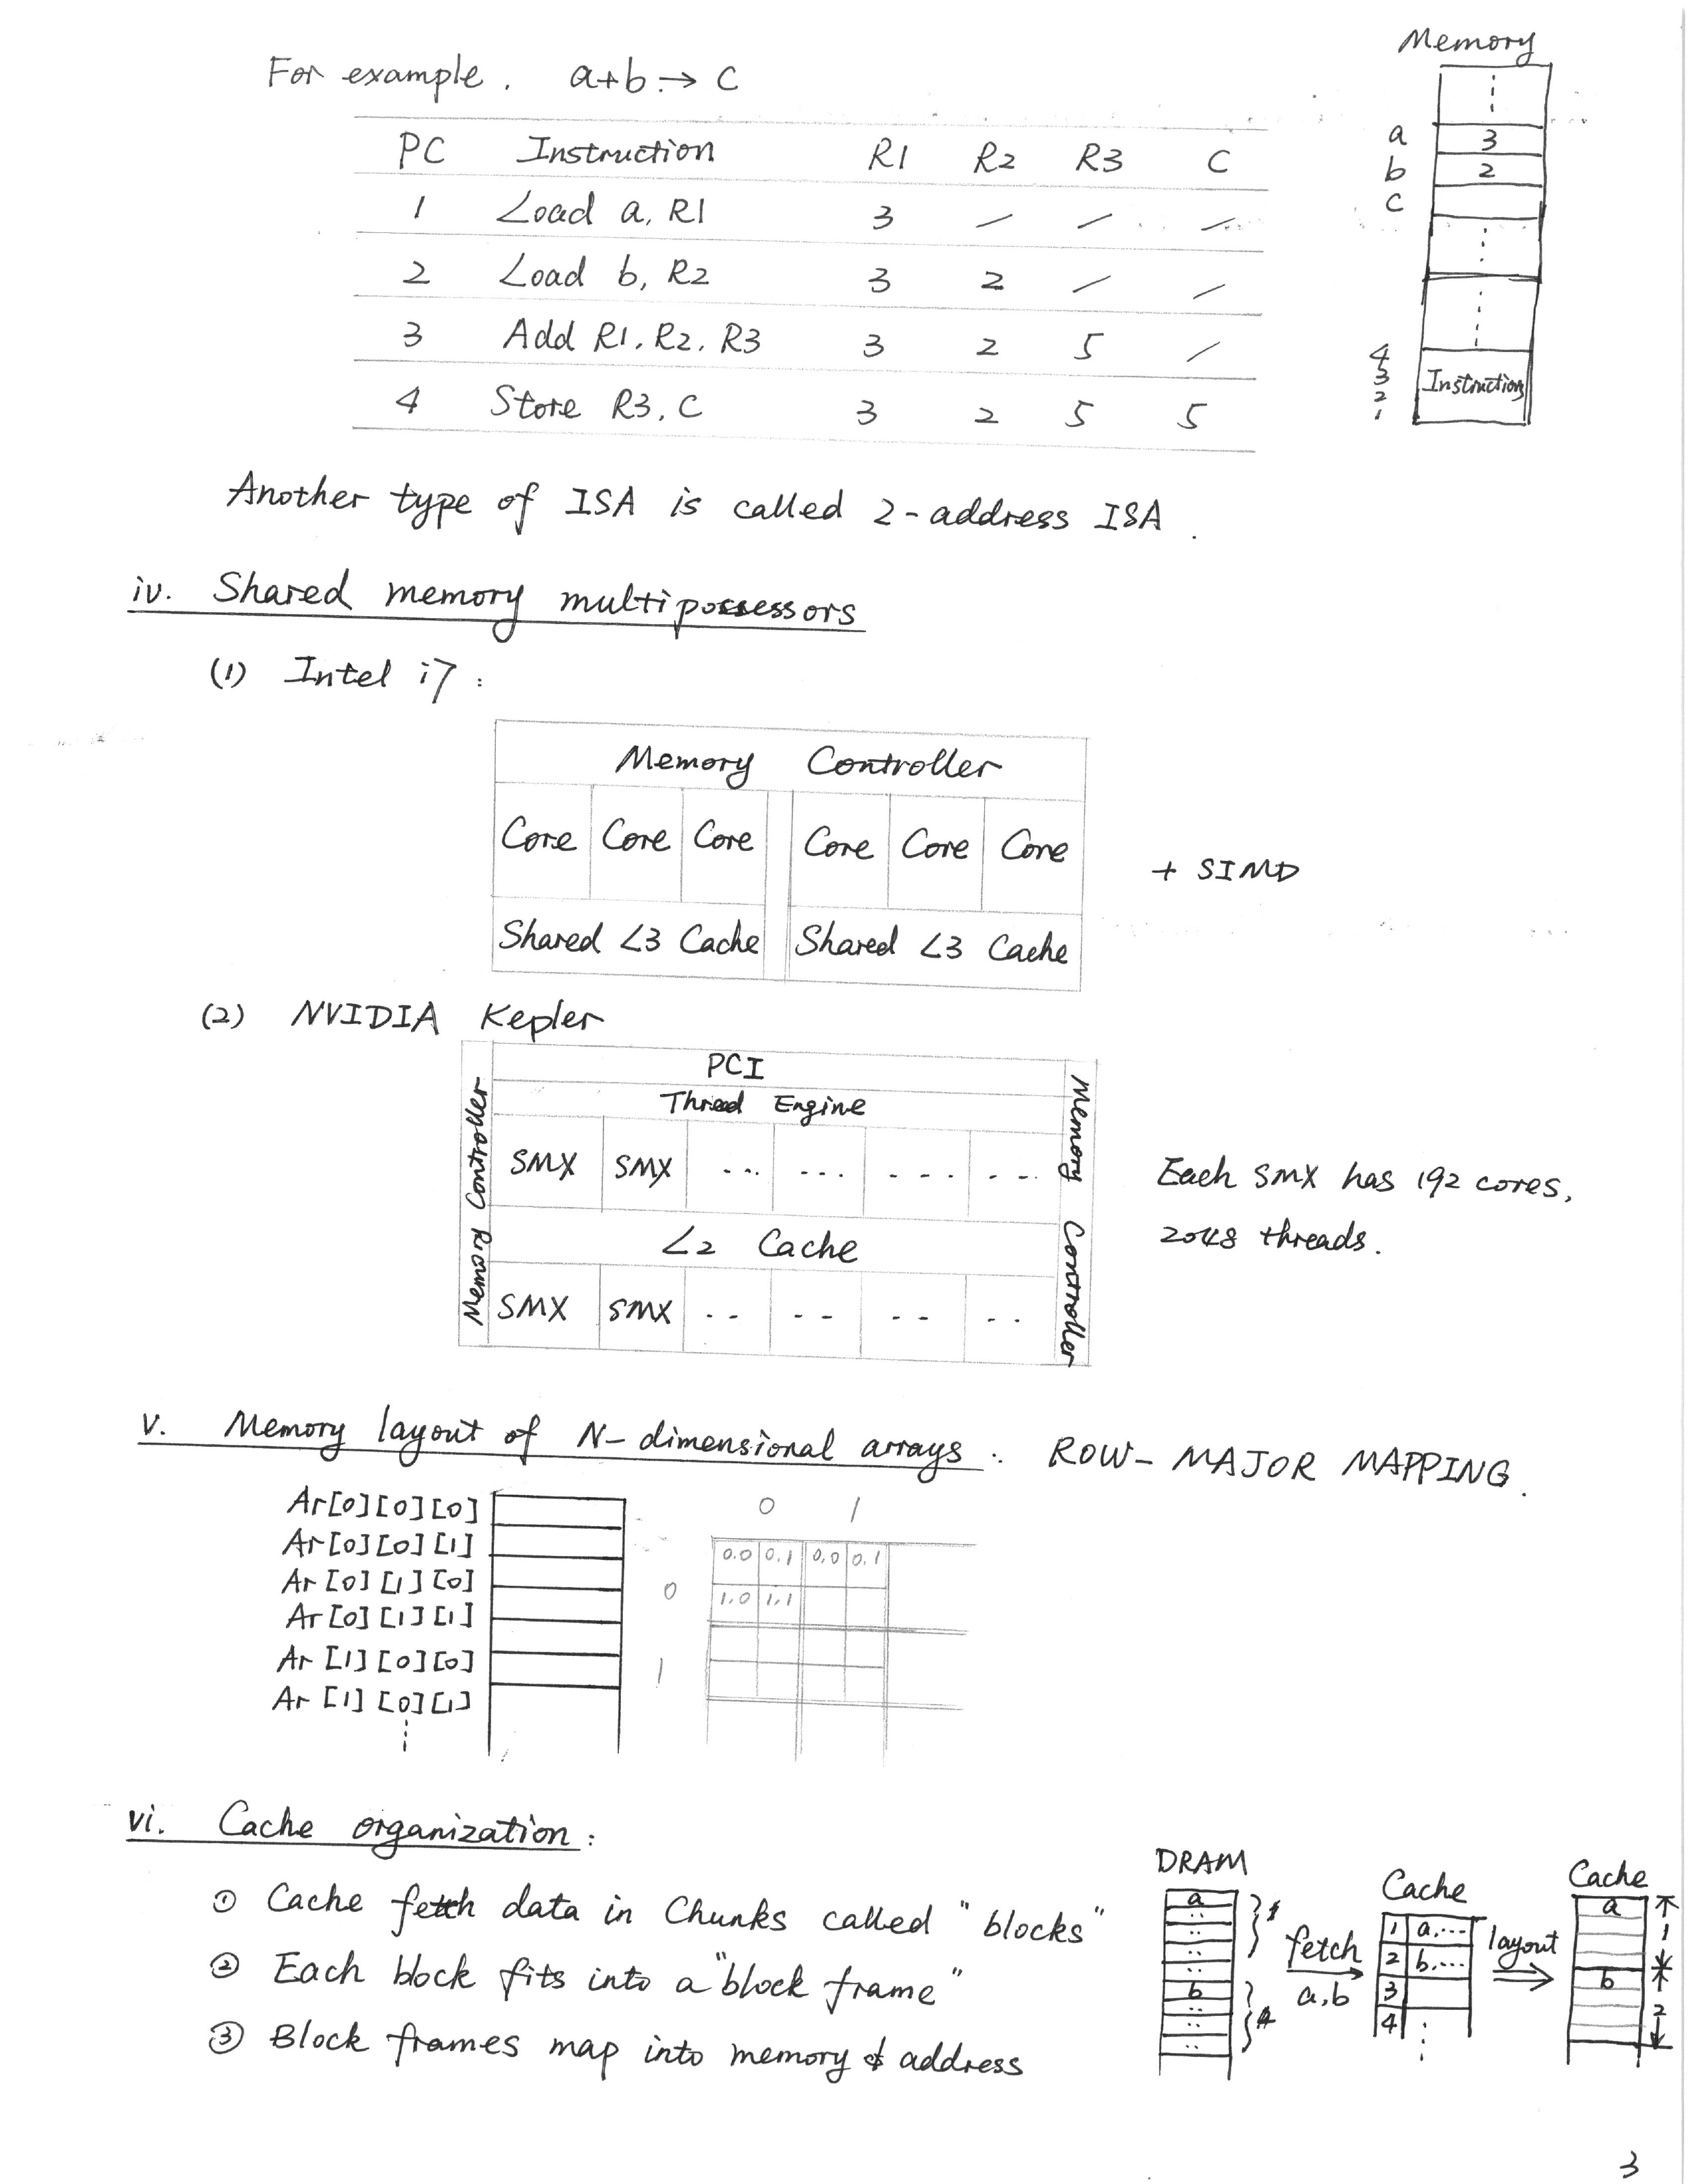 For example. a+b → C
PC Instruction R1 R2 R3 C
1 Load a, R1 3 / / /
2 Load b, R2 3 2 / /
3 Add R1, R2, R3 3 2 5 /
4 Store R3, C 3 2 5 5
Memory
a 3
b 2
c
4
3
2
1
Instruction
Another type of ISA is called 2-address ISA.
iv. Shared memory multipossessors
(1) Intel i7:
Memory Controller
Core Core Core Core Core Core
Shared L3 Cache Shared L3 Cache
+ SIMD
(2) NVIDIA Kepler
PCI
Thread Engine
Memory Controller
SMX SMX ... ... ... ...
L2 Cache
SMX SMX .. .. .. ..
Memory Controller
Each SMX has 192 cores,
2048 threads.
v. Memory layout of N-dimensional arrays: ROW-MAJOR MAPPING.
Ar[0][0][0]
Ar[0][0][1]
Ar[0][1][0]
Ar[0][1][1]
Ar[1][0][0]
Ar[1][0][1]
0 1
0.0 0.1 0.0 0.1
0
1.0 1.1
1
vi. Cache organization:
① Cache fetch data in Chunks called "blocks"
② Each block fits into a "block frame"
③ Block frames map into memory address
DRAM
a
b
fetch
a,b
Cache
1 a,...
2 b,...
3
4
layout
Cache
a
1
b
2
3